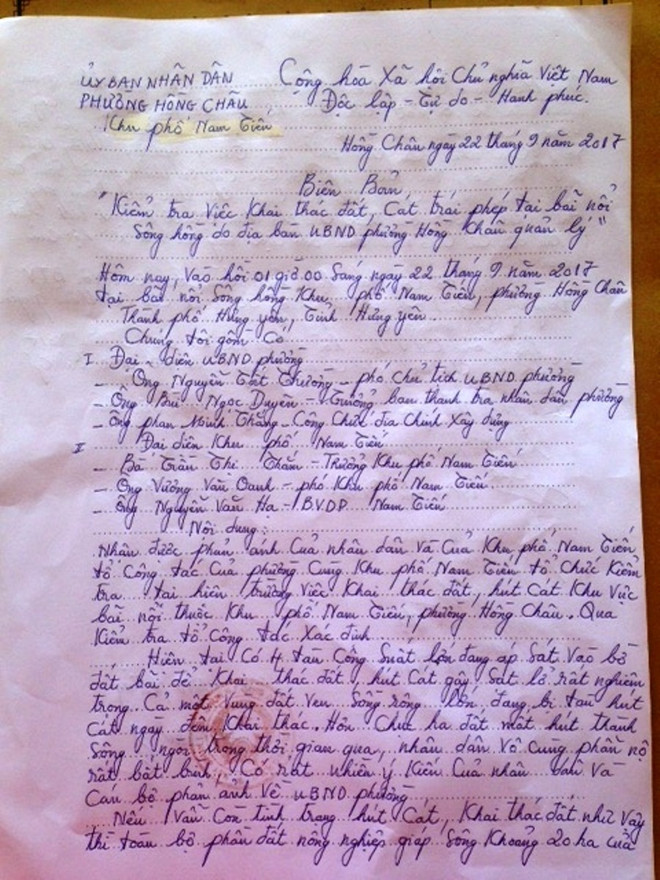 ỦY BAN NHÂN DÂN Cộng hoà Xã hội Chủ nghĩa Việt Nam
PHƯỜNG HỒNG CHÂU Độc lập - Tự do - Hạnh phúc.
Khu phố Nam Tiến
Hồng Châu ngày 22 tháng 9 năm 2017
Biên Bản
"Kiểm tra Việc Khai thác đất, Cát trái phép tại bãi nổi
Sông hồng do địa bàn UBND phường Hồng Châu quản lý"
Hôm nay, Vào hồi 01 giờ 00 Sáng ngày 22 tháng 9 năm 2017
tại bãi nổi Sông hồng Khu phố Nam Tiến, phường Hồng Châu
Thành phố Hưng yên, Tỉnh Hưng yên
Chúng tôi gồm Có
I Đại diện UBND phường
- Ông Nguyễn Tất Trường - phó Chủ tịch UBND phường
- Ông Bùi Ngọc Duyên - Trưởng ban thanh tra nhân dân phường
- Ông phan Minh Thắng - Công Chức địa Chính Xây dựng
II Đại diện Khu phố Nam Tiến
- Bà Trần Thị Thắm - Trưởng Khu phố Nam Tiến
- Ông Vương Văn Oanh - phó Khu phố Nam Tiến
- Ông Nguyễn Văn Hạ - BVDP Nam Tiến
Nội dung:
Nhận được phản ánh Của nhân dân Và Của Khu phố Nam Tiến
tổ Công tác Của phường Cùng Khu phố Nam Tiến tổ Chức Kiểm
tra tại hiện trường Việc Khai thác đất, hút Cát Khu Vực
bãi nổi thuộc Khu phố Nam Tiến, phường Hồng Châu. Qua
Kiểm tra tổ Công tác Xác định
Hiện tại Có 4 tàu Công Suất lớn đang áp Sát Vào bờ
đất bãi để Khai thác đất, hút Cát gây Sạt lở rất nghiêm
trọng Cả một Vùng đất Ven Sông rộng lớn đang bị tàu hút
Cát ngày đêm Khai thác. Hơn Chục ha đất mất hút thành
Sông ngòi trong thời gian qua, nhân dân Vô Cùng phẫn nộ
rất bất bình, Có rất nhiều ý Kiến Của nhân dân Và
Cán bộ phản ánh Về UBND phường
Nếu Vẫn Còn tình trạng hút Cát, Khai thác đất như Vậy
thì toàn bộ phần đất nông nghiệp giáp Sông Khoảng 20 ha của